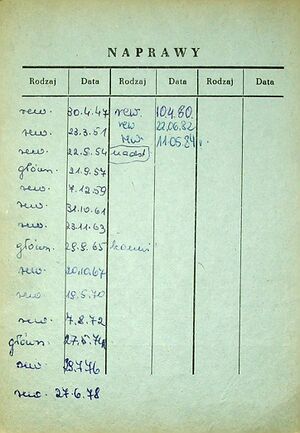 NAPRAWY
Rodzaj Data Rodzaj Data Rodzaj Data
rew. 30.4.47 rew. 10.4.80.
rew. 23.3.51 rew 22.06.82
rew. 22.8.54 rew. 11.05.84 r.
główn. 21.9.57
rew. 7.12.59
rew. 31.10.61
rew. 23.11.63
główn. 28.8.65
rew. 20.10.67
rew. 19.5.70
rew. 7.8.72
główn. 27.5.74
rew. 28.7.76
rew. 27.6.78